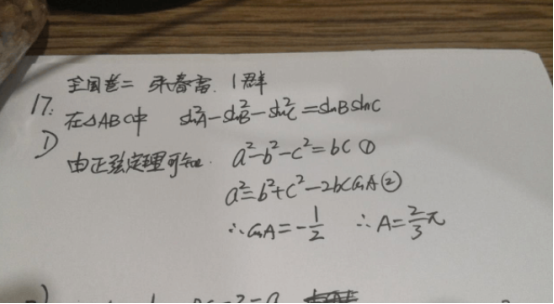 全国卷二 1群
17.
在△ABC中 sin²A-sin²B-sin²C=sinBsinC
1)
由正弦定理可知. a²-b²-c²=bc ①
a²=b²+c²-2bccosA ②
∴cosA=-1/2 ∴A=2/3π